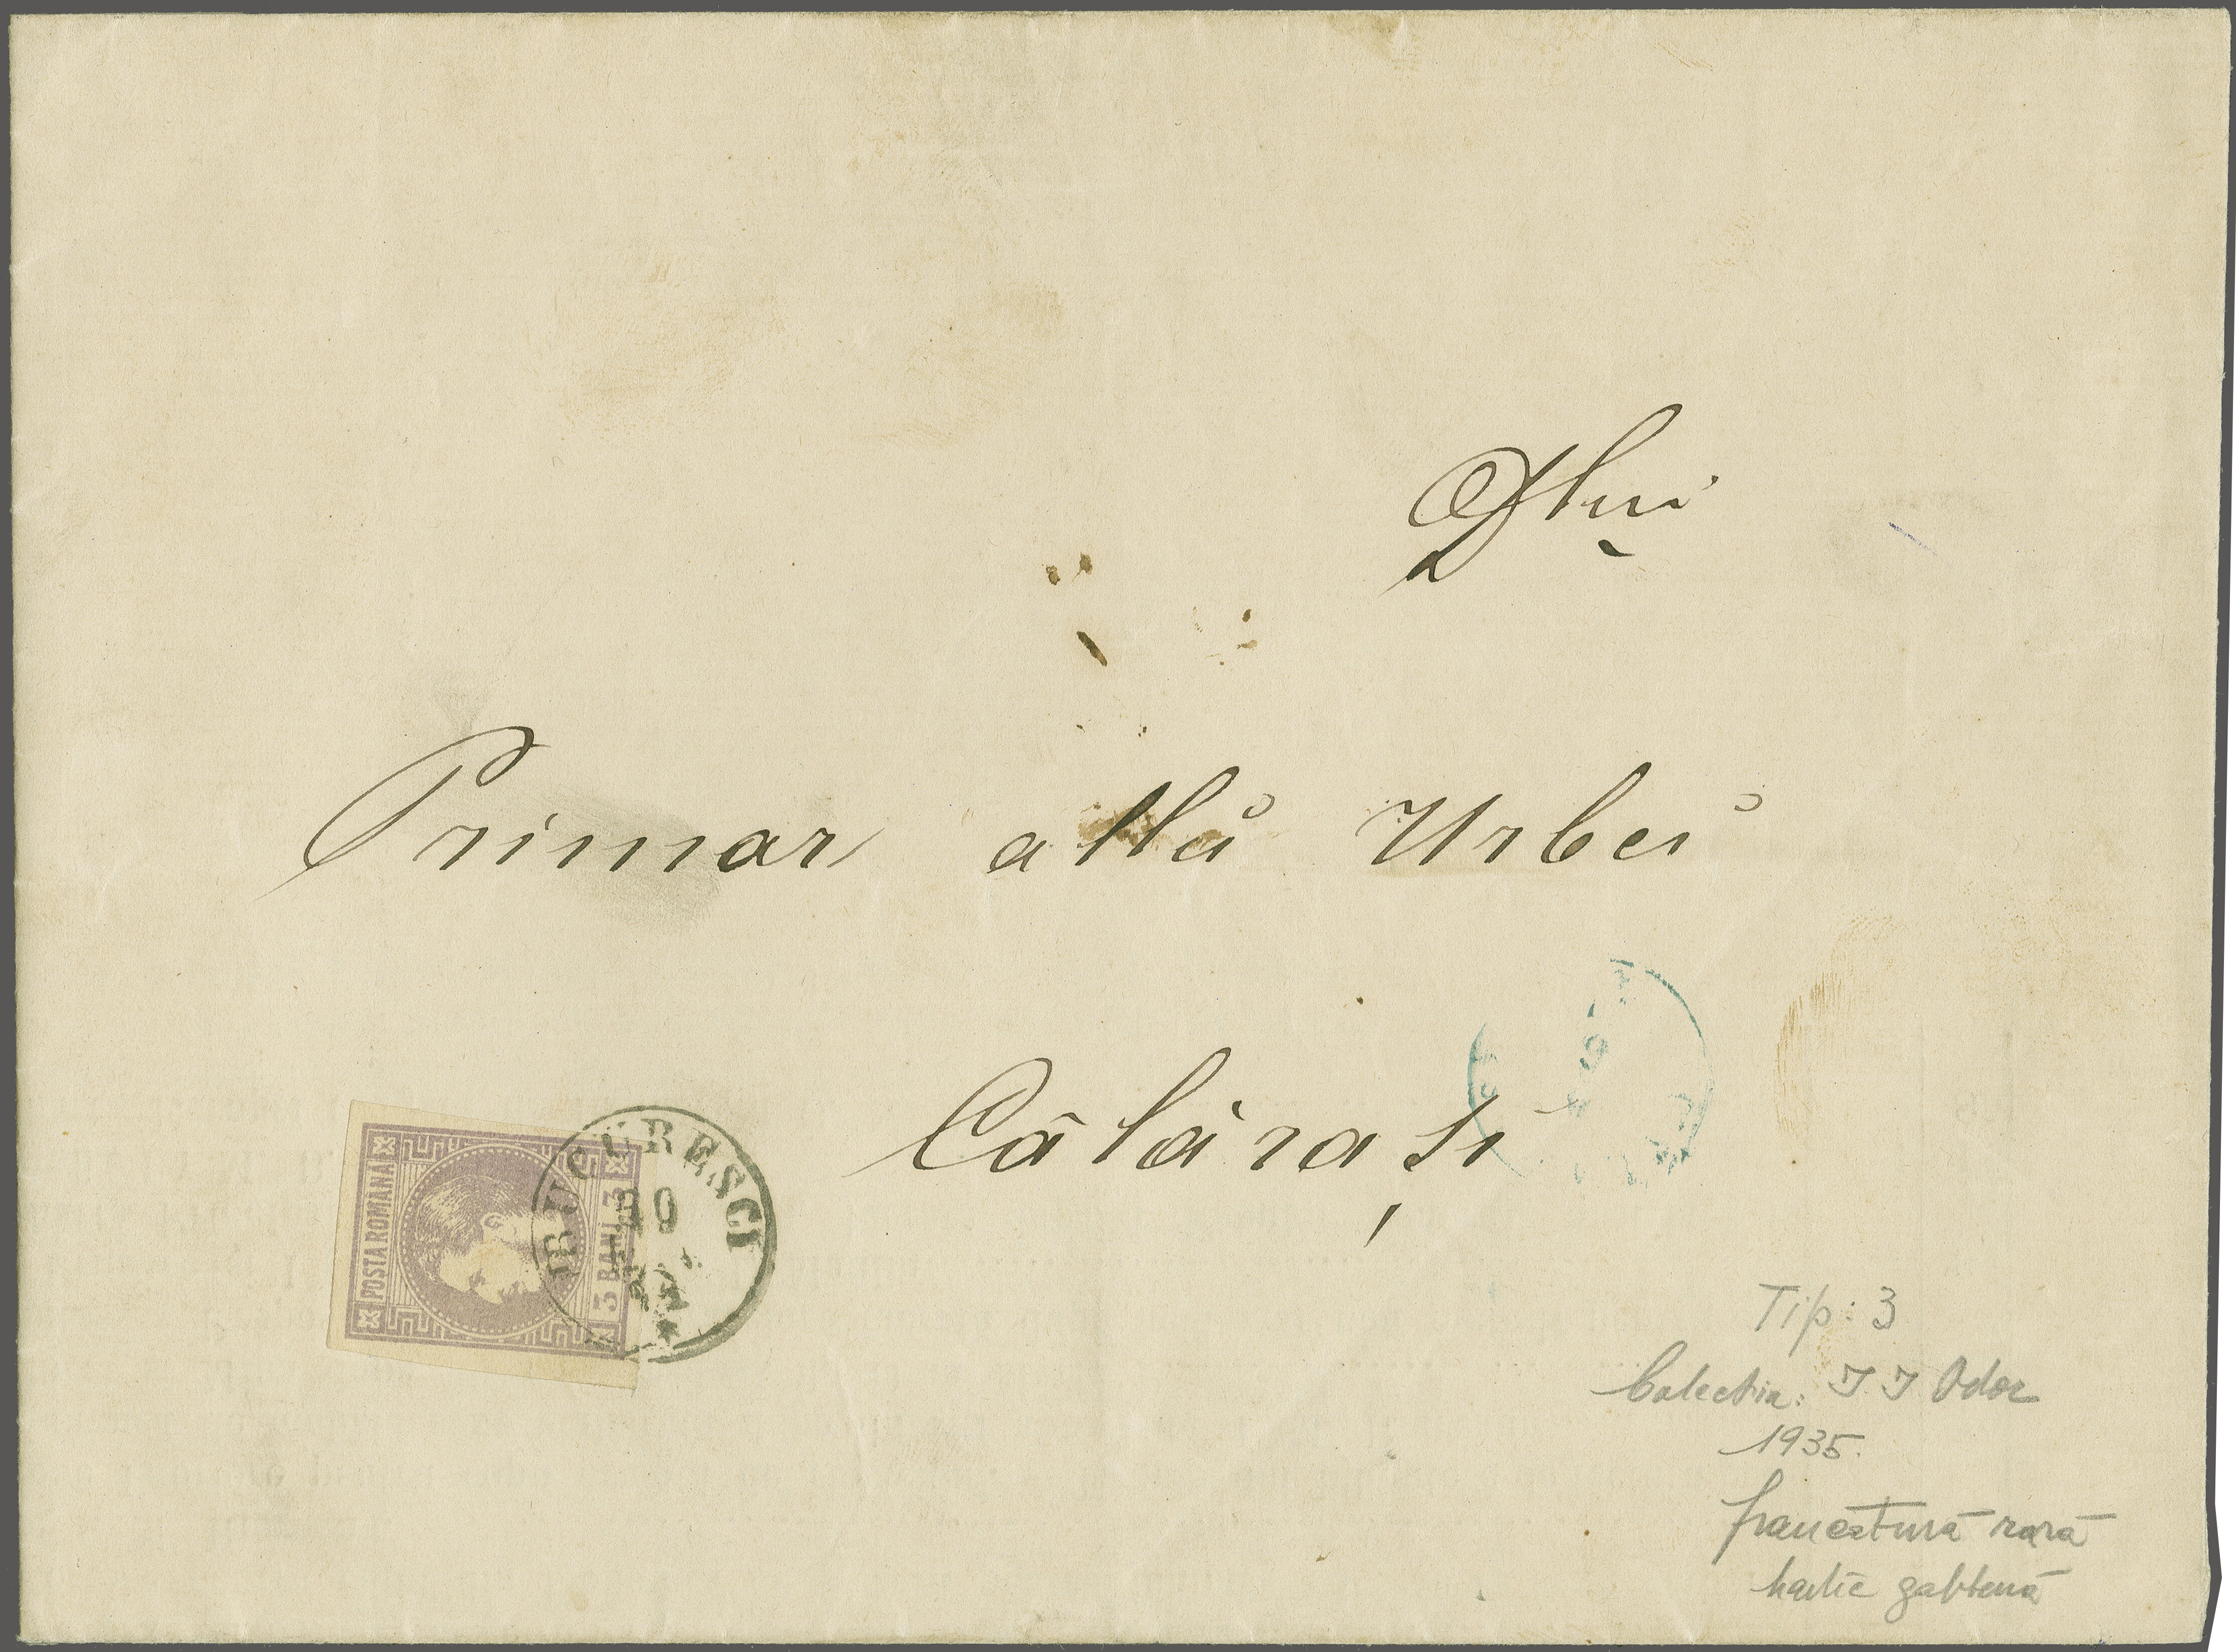 Dlui
Primar allŭ Urbeĭ
Călărași
POSTA ROMANA
3 BANI 3
BUCURESCI
Tip: 3
Colectia: I I Odor
1935.
francatură rară
hartie galbenă